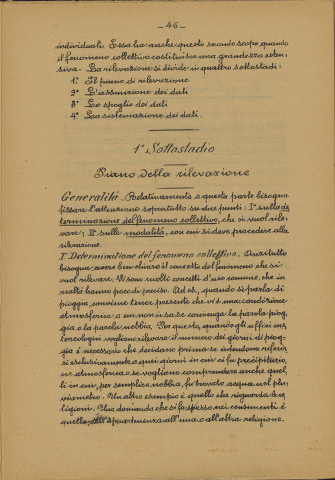 — 46 —
individuati. Essa ha anche questo secondo scopo, quando
il fenomeno collettivo costituisce una grandezza esten-
siva. La rilevazione si divide in quattro sottostadi:
1° Il piano di rilevazione
2° L'assunzione dei dati
3° Lo spoglio dei dati
4° La sistemazione dei dati.
1° Sottostadio
Piano della rilevazione
Generalità. Relativamente a questa parte bisogna
fissare l'attenzione soprattutto su due punti: I° sulla de
terminazione del fenomeno collettivo, che si vuol rile-
vare; II° sulle modalità, con cui si deve procedere alla
rilevazione.
I° Determinazione del fenomeno collettivo. Anzitutto
bisogna avere ben chiaro il concetto del fenomeno che si
vuol rilevare. Vi sono molti concetti d'uso comune, che in
realtà hanno poco di preciso. Ad es., quando si parla di
pioggia, conviene tener presente che vi è una condizione
atmosferica a cui non si sa se convenga la parola piog,
gia o la parola nebbia. Per questo, quando gli uffici me,
teorologici vogliono rilevare il numero dei giorni di piog,
gia è necessario che decidano prima se intendono riferir,
si esclusivamente a quei giorni in cui ci fu precipitazio,
ne atmosferica o se vogliano comprendere anche quel,
li in cui, per semplice nebbia, fu trovato acqua nel plu,
viometro. Un altro esempio è quello che riguarda le re,
ligioni. Una domanda che si fa spesso nei censimenti è
quella dell'appartenenza all'una o all'altra religione.